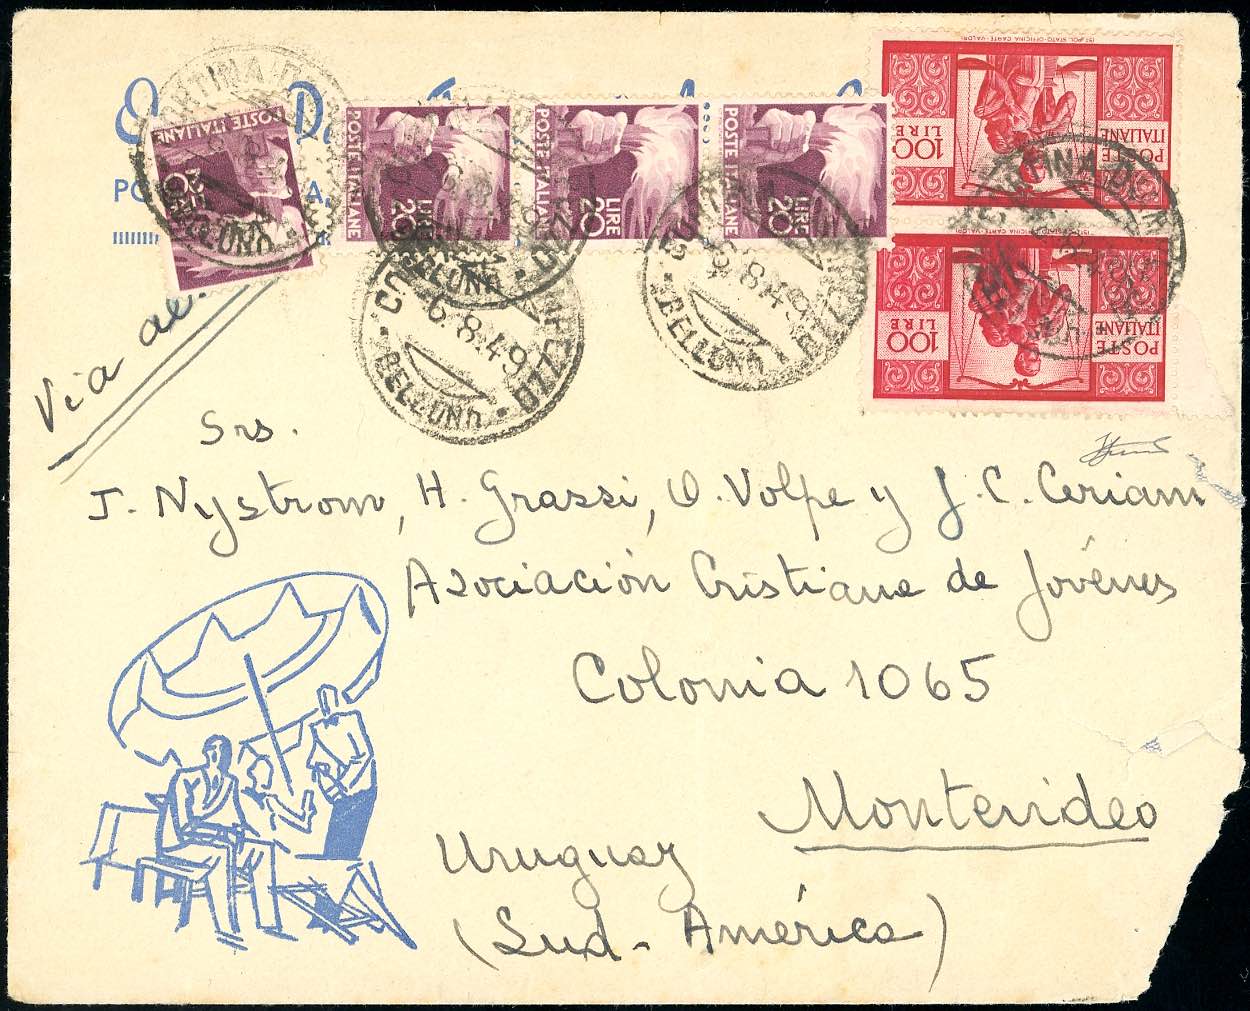 POSTE ITALIANE
LIRE 20
POSTE ITALIANE
LIRE 20
POSTE ITALIANE
LIRE 20
POSTE ITALIANE
LIRE 20
IST. POL. STATO-OFFICINA CARTE-VALORI
POSTE ITALIANE
100 LIRE
POSTE ITALIANE
100 LIRE
CORTINA D'AMPEZZO
BELLUNO
6.8.49
CORTINA D'AMPEZZO
BELLUNO
6.8.49
Via
Srs.
J. Nystrom, H. Grassi, O. Volpe y J. C. Ceriani
Asociación Cristiana de Jóvenes
Colonia 1065
Montevideo
Uruguay
(Sud-América)